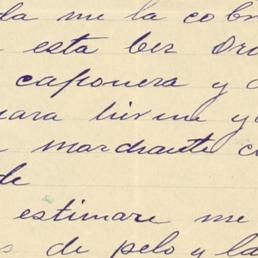 da me la cob
esta ber Or
caponera y
para
marchante c
de
estimare me
s de pelo y la